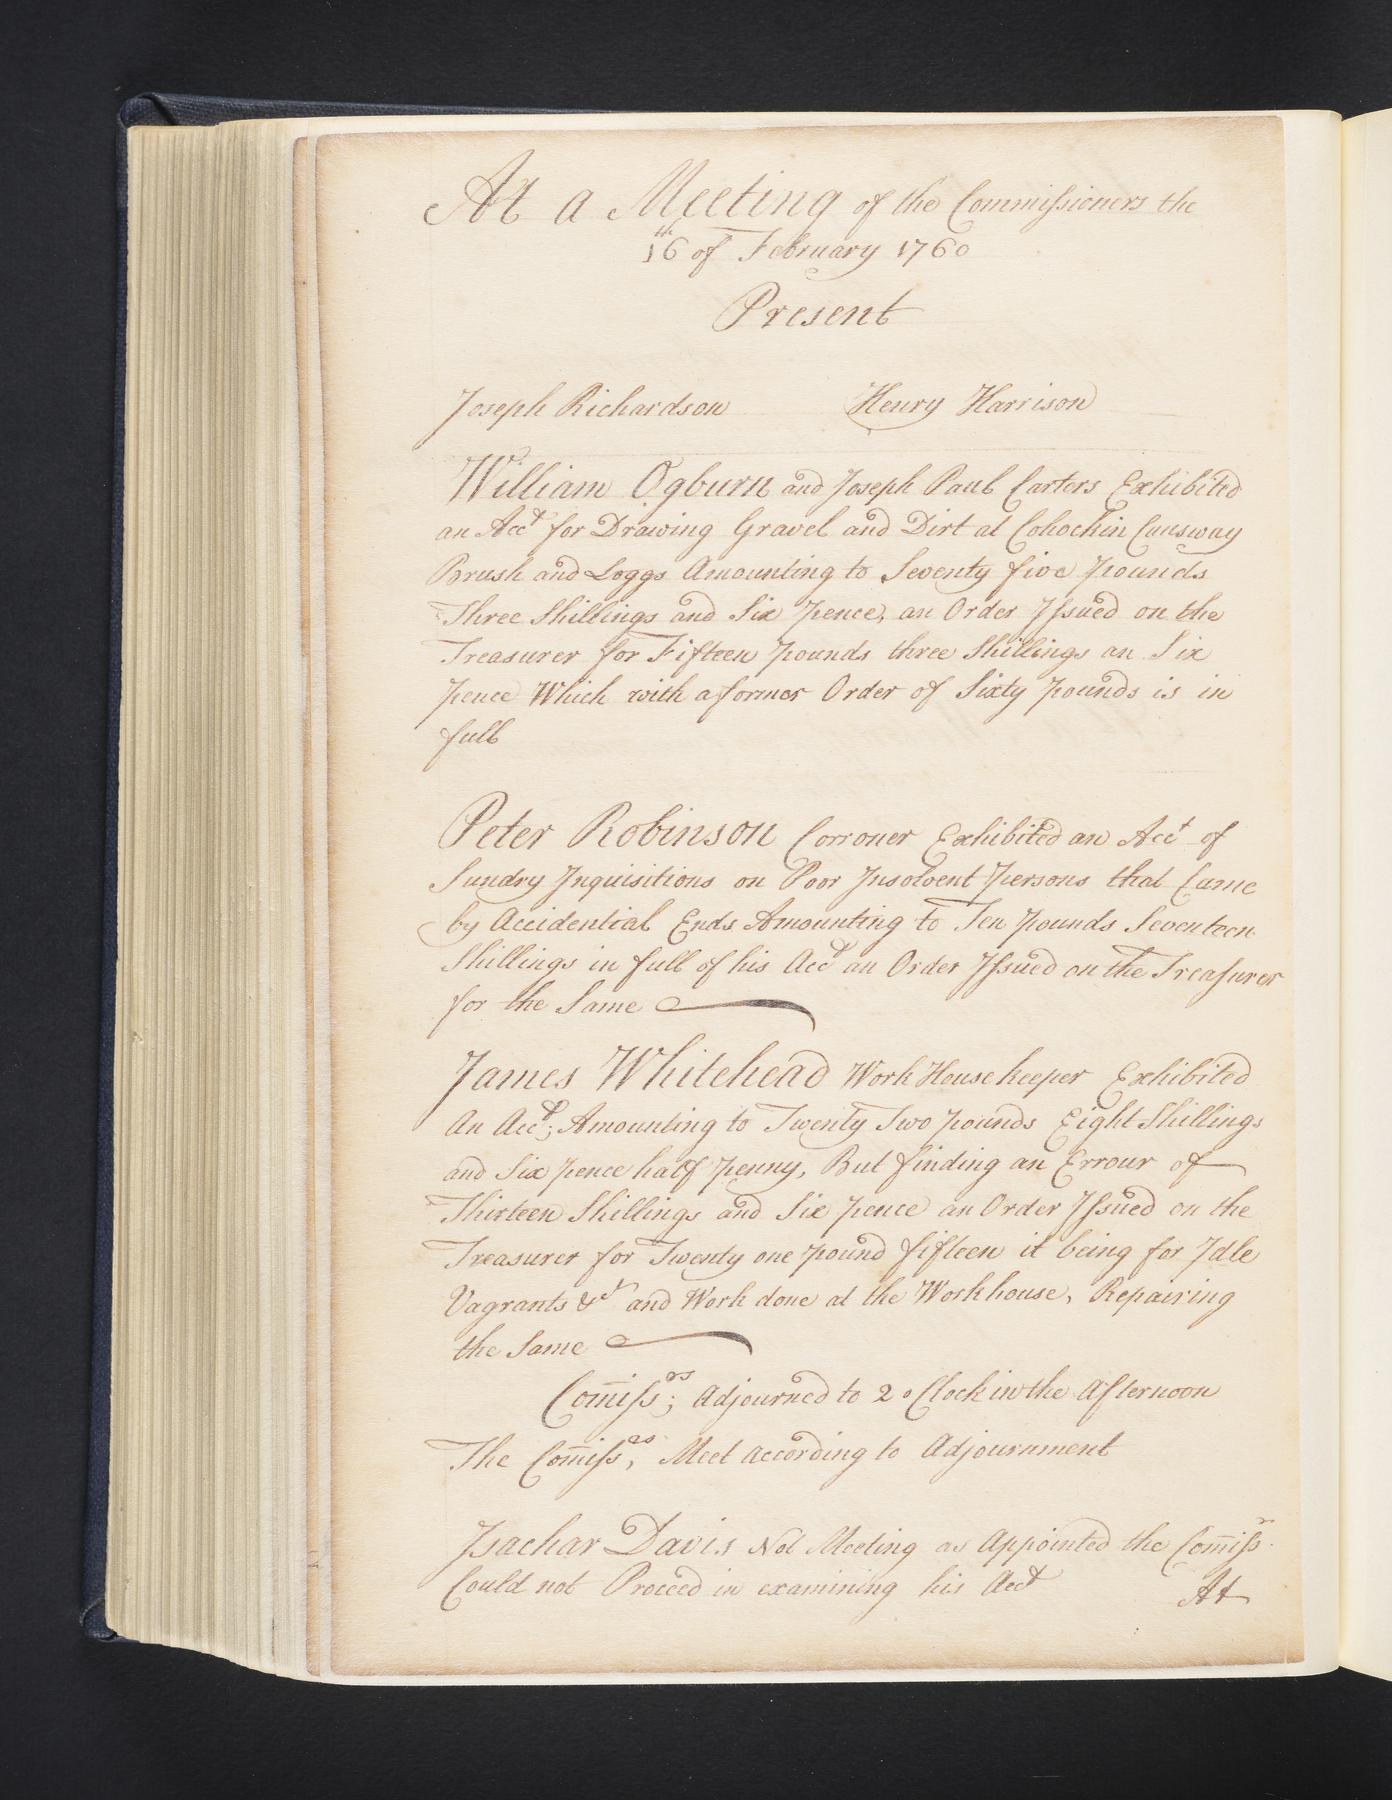 At a Meeting of the Commissioners the
16th of February 1760
Present
Joseph Richardson Henry Harrison
William Ogburn and Joseph Paul Carters Exhibited
an Acct for Drawing Gravel and Dirt at Cohockin Causway
Brush and Loggs Amounting to Seventy five pounds
Three Shillings and Six pence, an Order Issued on the
Treasurer for Fifteen pounds three Shillings an Six
pence Which with a former Order of Sixty pounds is in
full
Peter Robinson Corroner Exhibited an Acct of
Sundry Inquisitions on Poor Insolvent Persons that Came
by Accidential Ends Amounting to Ten pounds Seventeen
Shillings in full of his Acct an Order Issued on the Treasurer
for the Same
James Whitehead Work House keeper Exhibited
An Acct; Amounting to Twenty Two pounds Eight Shillings
and Six pence half penny, But finding an Errour of
Thirteen Shillings and Six pence an Order Issued on the
Treasurer for Twenty one pound fifteen it being for Idle
Vagrants &c and Work done at the Workhouse, Repairing
the Same
Com̄issrs; Adjourned to 2 o Clock in the Afternoon
The Com̄issrs, Meet according to Adjournment
Isachar Davis Not Meeting as Appointed the Com̄issr
Could not Proceed in examining his Acct
At